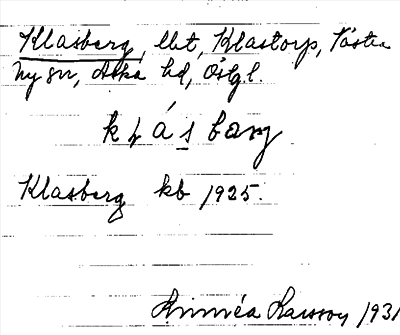 Klasberg, lht, Klastorp, Västra
Ny sn, Aska hd, Ögl.
klásbarj
Klasberg kb 1925.
Linnéa Larsson 1931